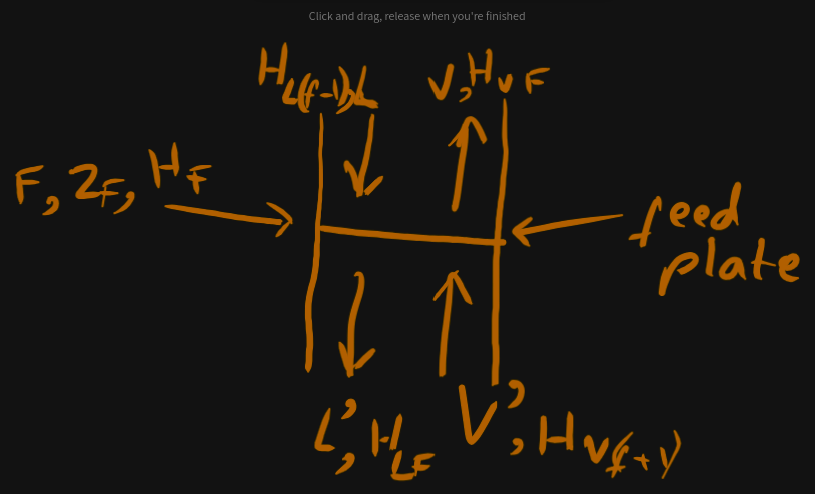 Click and drag, release when you're finished
H_L(f-1), L
V, H_VF
F, Z_F, H_F
feed
plate
L', H_LF
V', H_V(f+1)